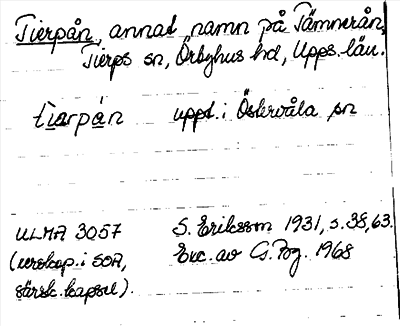 Tierpån, annat namn på Tämnerån,
Tierps sn, Örbyhus hd, Upps. län.
tiarpán uppt. i Östervåla sn
ULMA 3057 S. Eriksson 1931, s. 38, 63.
(avskap. i SOA, Exc. av G. Pog. 1968
särsk. kapsel).